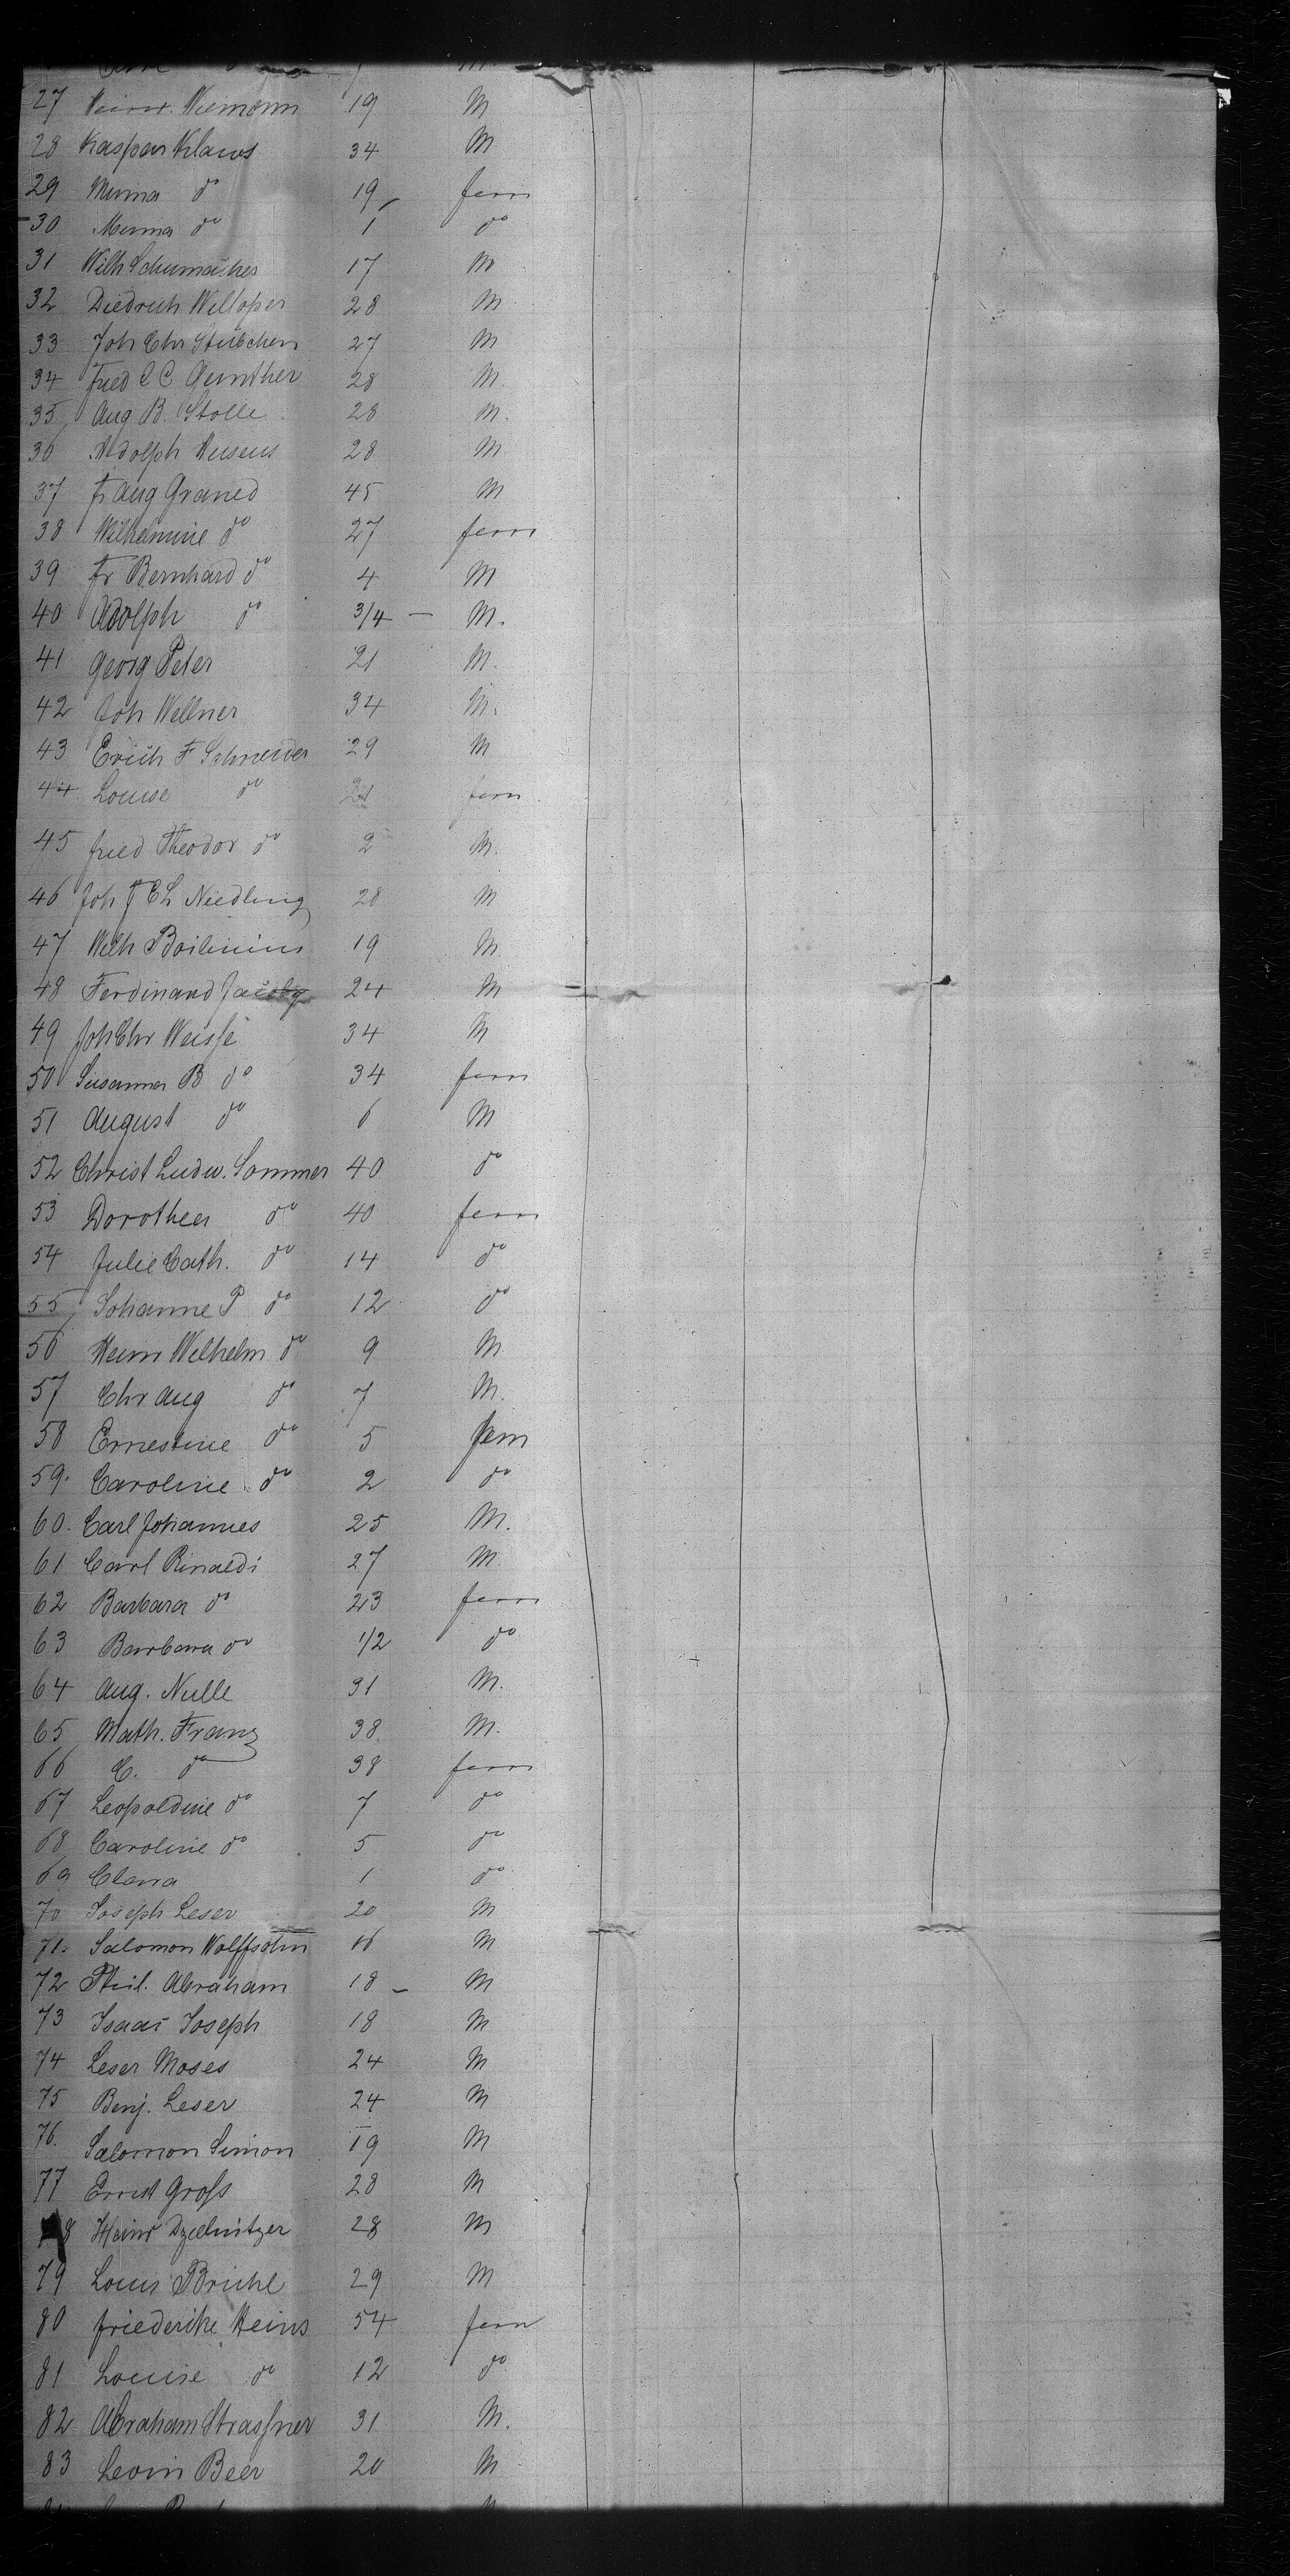 27 Heinr. Niemann 19 M
28 Kaspar Klaws 34 M
29 Minna do 19 fem
30 Minna do 1 do
31 Wilh Schumacher 17 M
32 Diedrich 28 M
33 Joh Chr Stübchen 27 M
34 Fried C C Gunther 28 M.
35 Aug B. Stolle 28 M.
36 Adolph 28 M
37 Fr Aug Graned 45 M
38 Wilhelmine do 27 fem
39 Fr Bernhard do 4 M
40 Adolph do 3/4 — M.
41 Georg Peter 21 M.
42 Joh Wellner 34 M.
43 Erich F Schneider 29 M
44 Louise do 21 fem
45 Fried Theodor do 2 M.
46 Joh F Ch Niedling 28 M
47 Wilh 19 M
48 Ferdinand Jacoby 24 M
49 Joh Chr Weisse 34 M
50 Susanna B do 34 fem
51 August do 6 M
52 Christ Ludw. Sommer 40 do
53 Dorothea do 40 fem
54 Julie Cath. do 14 do
55 Johanne P do 12 do
56 Heinr Wilhelm do 9 M
57 Chr Aug do 7 M.
58 Ernestine do 5 fem
59. Caroline do 2 do
60. Carl Johannes 25 M.
61 Carl Rinaldi 27 M.
62 Barbara do 23 fem
63 Barbara do 1/2 do
64 Aug. Nulle 31 M.
65 Math. Franz 38 M.
66 C. do 38 fem
67 Leopoldine do 7 do
68 Caroline do 5 do
69 Clara 1 do
70 Joseph Leser 20 M
71. Salomon Wolffsohn 16 M
72 Phil. Abraham 18 — M
73 Isaac Joseph 18 M
74 Leser Moses 24 M
75 Benj. Leser 24 M
76. Salomon Simon 19 M
77 Ernst Gross 28 M
78 Heinr 28 M
79 Louis Brühl 29 M
80 Friederike Heins 54 fem
81 Louise do 12 do
82 Abraham Strassner 31 M.
83 Levin Beer 20 M